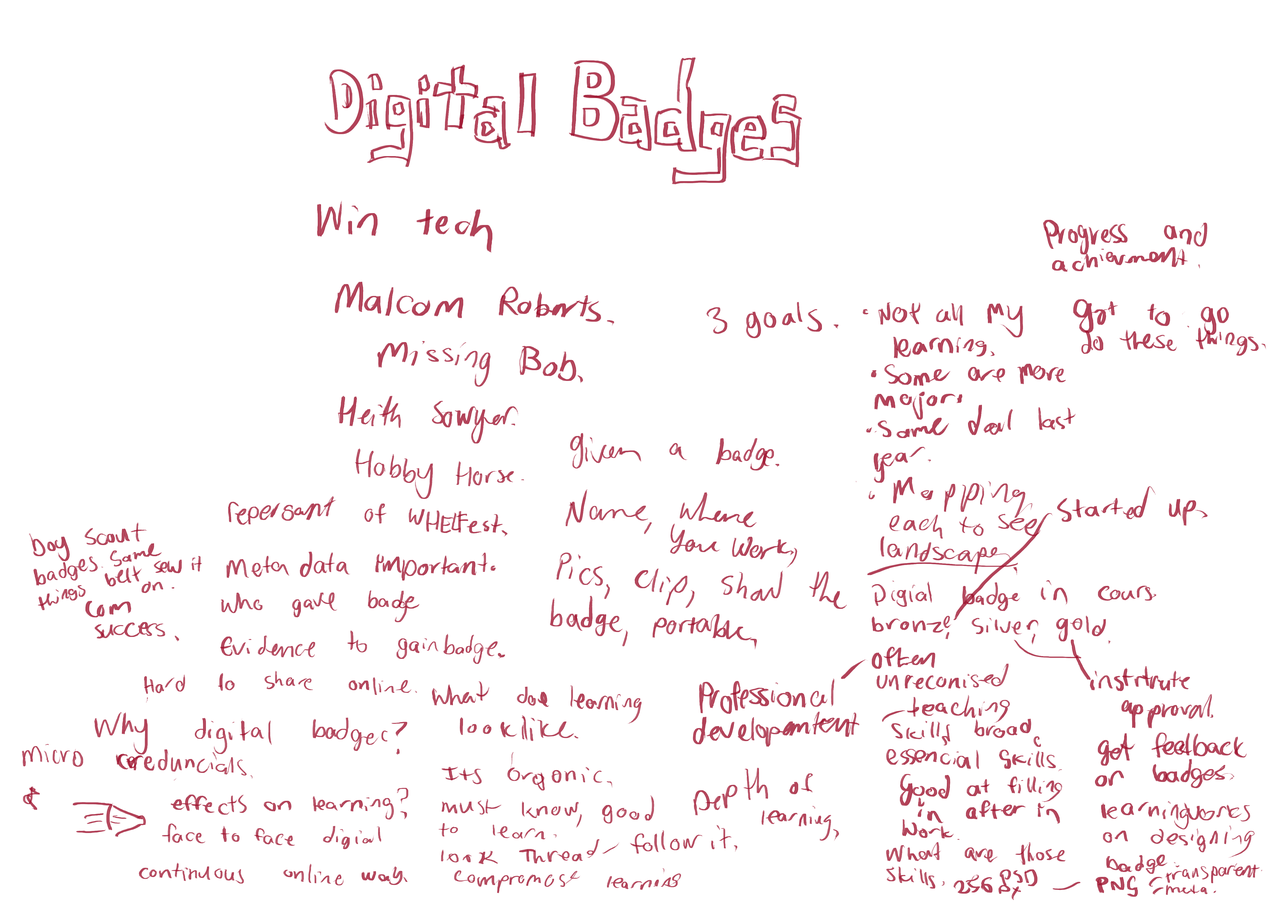 Digital Badges
Win tech
Malcom Roberts.
Missing Bob.
Heith Sowyer.
Hobby Horse.
repersant of WHELFest.
Meta data Important.
who gave badge
Evidence to gain badge.
boy scout
badges. Same
things belt sew it
on.
Com
success.
Hard to share online.
Why digital badges?
micro creduncials.
effects on learning?
face to face digial
continuous online way.
given a badge.
Name, where
you work,
Pics, clip, show the
badge, portable,
what doe learning
look like.
Its organic.
must know, good
to learn.
look Thread follow it.
compromose learning
3 goals.
Professional
developemtent
Depth of
learning,
• Not all my
learning.
• Some are more
major.
• Same deal last
year.
• Mapping
each to see
landscape
Started up.
Digial badge in cours.
bronze, silver, gold.
often
unreconised
teaching
skills broad.
essencial skills.
Good at filling
in after in
work.
What are those
skills. 256
Progress and
achievment.
got to go
do these things.
institute
approval.
got feedback
on badges.
learningworks
on designing
badge transparent
PNG